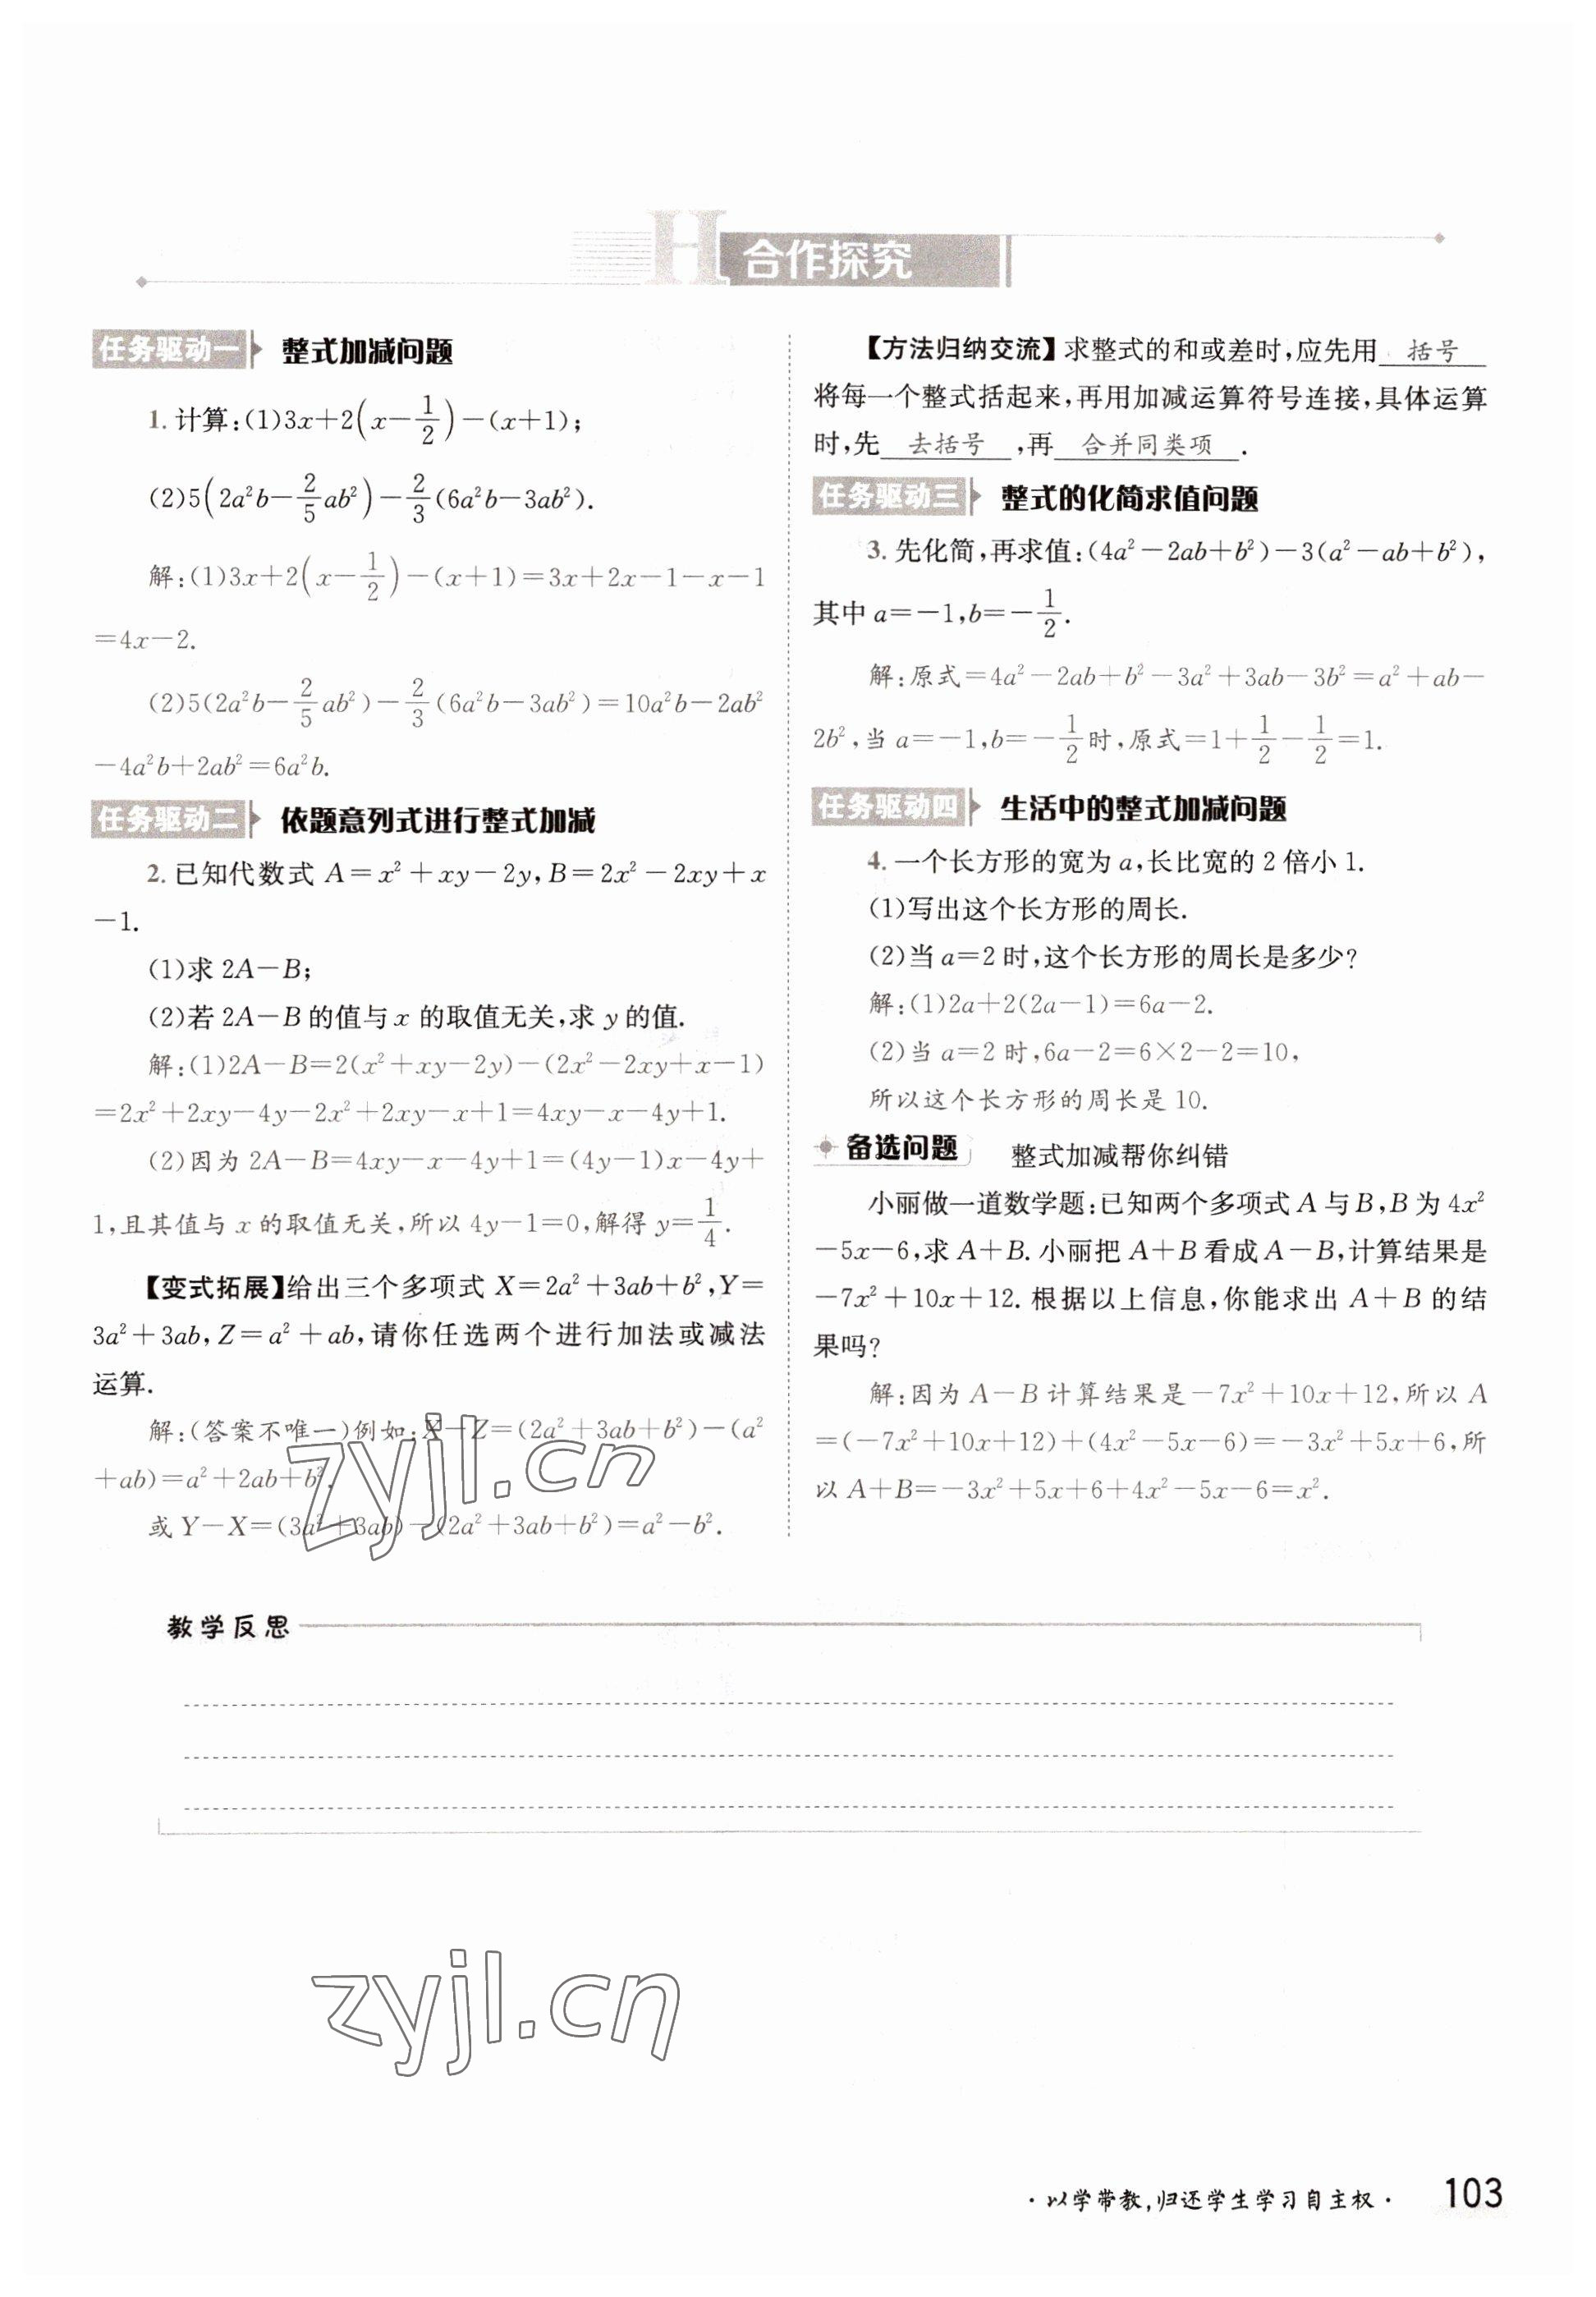 H 合作探究
任务驱动一 整式加减问题
1. 计算:(1)3x+2(x-1/2)-(x+1);
(2)5(2a²b-2/5ab²)-2/3(6a²b-3ab²).
解:(1)3x+2(x-1/2)-(x+1)=3x+2x-1-x-1
=4x-2.
(2)5(2a²b-2/5ab²)-2/3(6a²b-3ab²)=10a²b-2ab²
-4a²b+2ab²=6a²b.
任务驱动二 依题意列式进行整式加减
2. 已知代数式 A=x²+xy-2y,B=2x²-2xy+x
-1.
(1)求 2A-B;
(2)若 2A-B 的值与 x 的取值无关,求 y 的值.
解:(1)2A-B=2(x²+xy-2y)-(2x²-2xy+x-1)
=2x²+2xy-4y-2x²+2xy-x+1=4xy-x-4y+1.
(2)因为 2A-B=4xy-x-4y+1=(4y-1)x-4y+
1,且其值与 x 的取值无关,所以 4y-1=0,解得 y=1/4.
【变式拓展】给出三个多项式 X=2a²+3ab+b²,Y=
3a²+3ab,Z=a²+ab,请你任选两个进行加法或减法
运算.
解:(答案不唯一)例如:X-Z=(2a²+3ab+b²)-(a²
+ab)=a²+2ab+b².
或 Y-X=(3a²+3ab)-(2a²+3ab+b²)=a²-b².
【方法归纳交流】求整式的和或差时,应先用 括号
将每一个整式括起来,再用加减运算符号连接,具体运算
时,先 去括号 ,再 合并同类项 .
任务驱动三 整式的化简求值问题
3. 先化简,再求值:(4a²-2ab+b²)-3(a²-ab+b²),
其中 a=-1,b=-1/2.
解:原式=4a²-2ab+b²-3a²+3ab-3b²=a²+ab-
2b²,当 a=-1,b=-1/2时,原式=1+1/2-1/2=1.
任务驱动四 生活中的整式加减问题
4. 一个长方形的宽为 a,长比宽的 2 倍小 1.
(1)写出这个长方形的周长.
(2)当 a=2 时,这个长方形的周长是多少?
解:(1)2a+2(2a-1)=6a-2.
(2)当 a=2 时,6a-2=6×2-2=10,
所以这个长方形的周长是 10.
备选问题 整式加减帮你纠错
小丽做一道数学题:已知两个多项式 A 与 B,B 为 4x²
-5x-6,求 A+B. 小丽把 A+B 看成 A-B,计算结果是
-7x²+10x+12. 根据以上信息,你能求出 A+B 的结
果吗?
解:因为 A-B 计算结果是-7x²+10x+12,所以 A
=(-7x²+10x+12)+(4x²-5x-6)=-3x²+5x+6,所
以 A+B=-3x²+5x+6+4x²-5x-6=x².
zyjl.cn
教学反思
zyjl.cn
·以学带教,归还学生学习自主权· 103